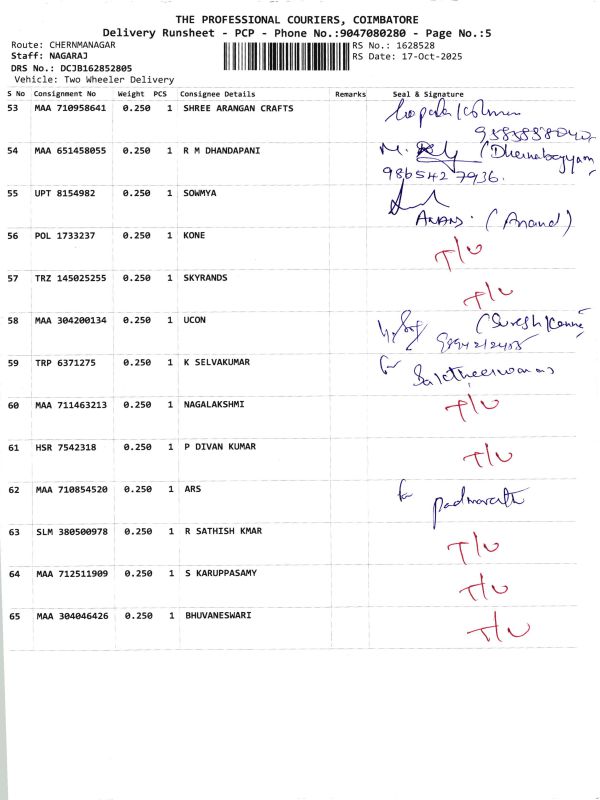 THE PROFESSIONAL COURIERS, COIMBATORE
Delivery Runsheet - PCP - Phone No.:9047080280 - Page No.:5
Route: CHERNMANAGAR RS No.: 1628528
Staff: NAGARAJ RS Date: 17-Oct-2025
DRS No.: DCJB162852805
Vehicle: Two Wheeler Delivery
S No Consignment No Weight PCS Consignee Details Remarks Seal & Signature
53 MAA 710958641 0.250 1 SHREE ARANGAN CRAFTS
54 MAA 651458055 0.250 1 R M DHANDAPANI M.
986542 7936.
55 UPT 8154982 0.250 1 SOWMYA
ANAND. (Anand)
56 POL 1733237 0.250 1 KONE T/U
57 TRZ 145025255 0.250 1 SKYRANDS T/U
58 MAA 304200134 0.250 1 UCON
59 TRP 6371275 0.250 1 K SELVAKUMAR for
60 MAA 711463213 0.250 1 NAGALAKSHMI T/U
61 HSR 7542318 0.250 1 P DIVAN KUMAR T/U
62 MAA 710854520 0.250 1 ARS for
63 SLM 380500978 0.250 1 R SATHISH KMAR T/U
64 MAA 712511909 0.250 1 S KARUPPASAMY T/U
65 MAA 304046426 0.250 1 BHUVANESWARI T/U